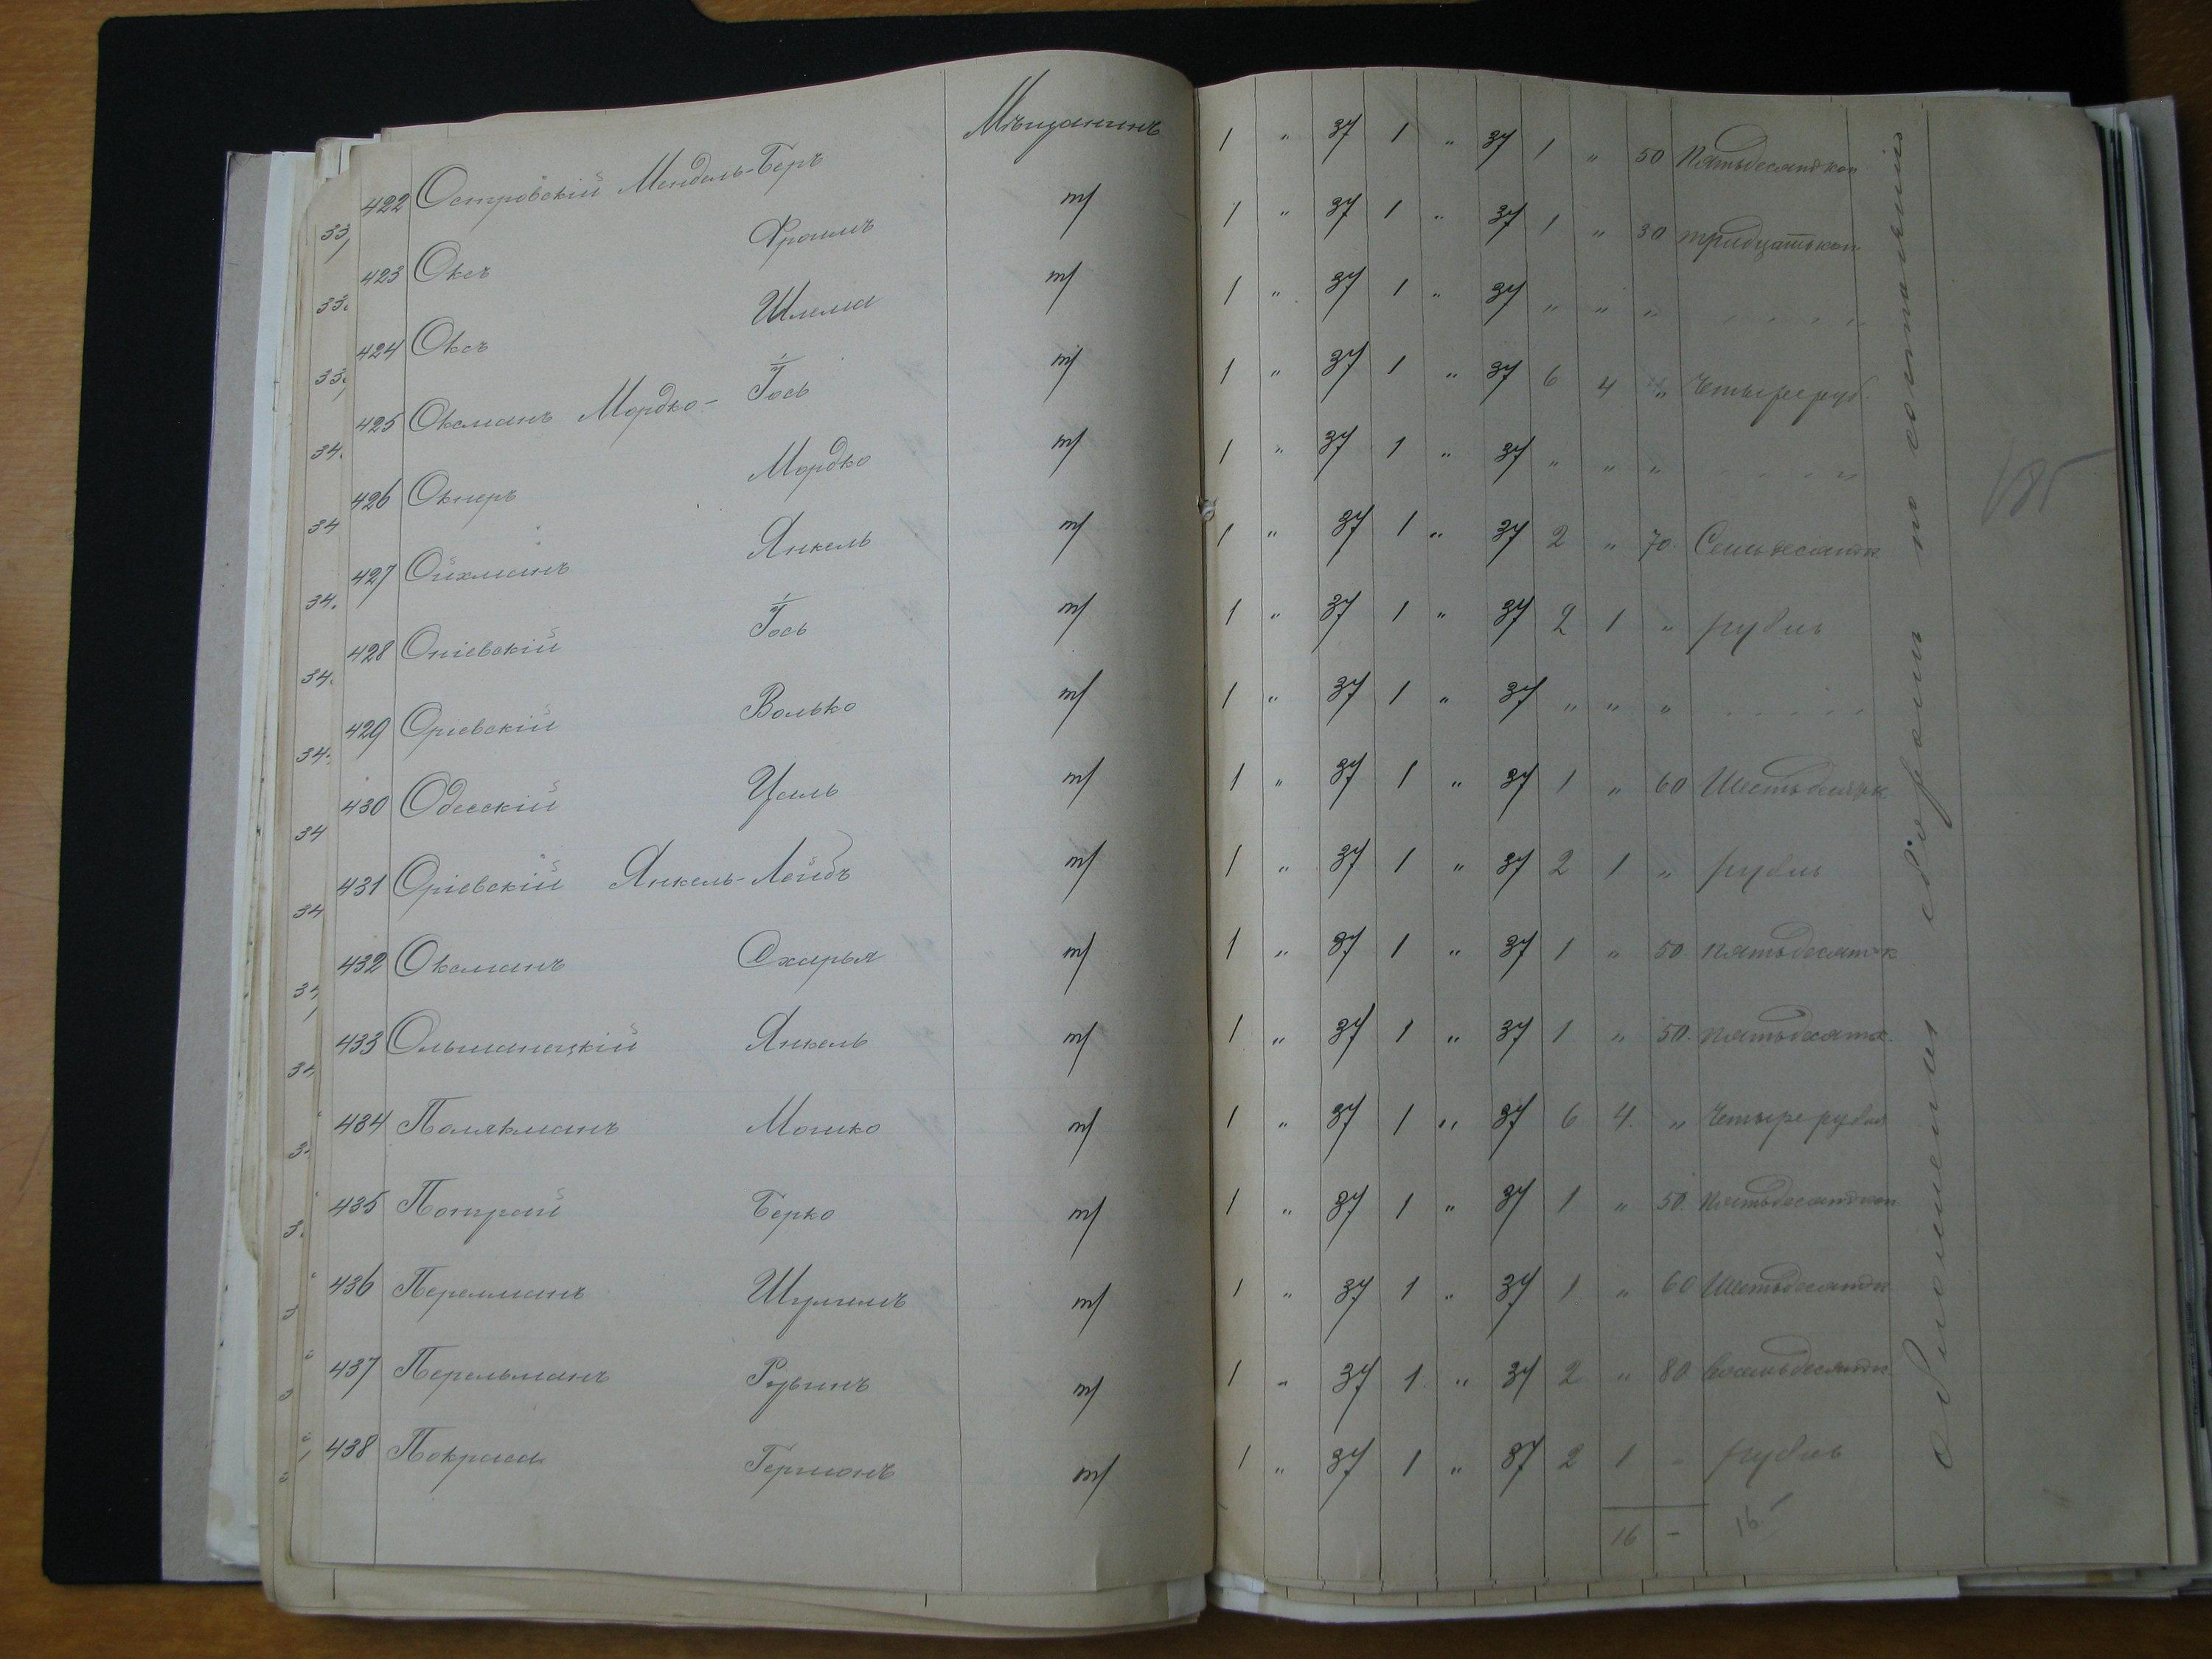 422 Островскій Мендель-Беръ Мѣщанинъ 1 " 37 1 " 37 1 " 50 Пятьдесят коп
423 Оксъ Фроимъ т/ 1 " 37 1 " 37 1 " 30 тридцать коп
424 Оксъ Шлема т/ 1 " 37 1 " 37 " " "
425 Оксманъ Мордко-Іось т/ 1 " 37 1 " 37 6 4 " Четыре руб.
426 Окнеръ Мордко т/ 1 " 37 1 " 37 " " "
427 Ойхманъ Янкель т/ 1 " 37 1 " 37 2 " 70 Семьдесят к
428 Оніевскій Іось т/ 1 " 37 1 " 37 2 1 " рубль
429 Оріевскій Волько т/ 1 " 37 1 " 37 " " "
430 Одесскій Усиль т/ 1 " 37 1 " 37 1 " 60 Шестьдесят к
431 Оріевскій Янкель-Лейбъ т/ 1 " 37 1 " 37 2 1 " рубль
432 Оксманъ Схарья т/ 1 " 37 1 " 37 1 " 50 Пятьдесят к
433 Ольшанецкій Янкель т/ 1 " 37 1 " 37 1 " 50 Пятьдесят к.
434 Полякманъ Мошко т/ 1 " 37 1 " 37 6 4 " Четыре рубля
435 Потрай Берко т/ 1 " 37 1 " 37 1 " 50 Пятьдесят коп
436 Перелманъ Шулимъ т/ 1 " 37 1 " 37 1 " 60 Шестьдесят к
437 Перельманъ Рувинъ т/ 1 " 37 1 " 37 2 " 80 Восемьдесят к
438 Покраса Германъ т/ 1 " 37 1 " 37 2 1 - рубль
16 - 16
по состоянію
185